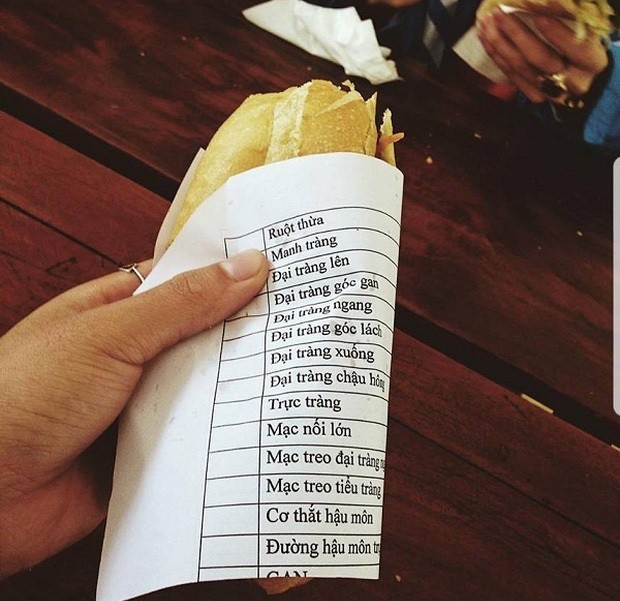 Ruột thừa
Manh tràng
Đại tràng lên
Đại tràng góc gan
Đại tràng ngang
Đại tràng góc lách
Đại tràng xuống
Đại tràng chậu hông
Trực tràng
Mạc nối lớn
Mạc treo đại tràng
Mạc treo tiểu tràng
Cơ thắt hậu môn
Đường hậu môn
GAN